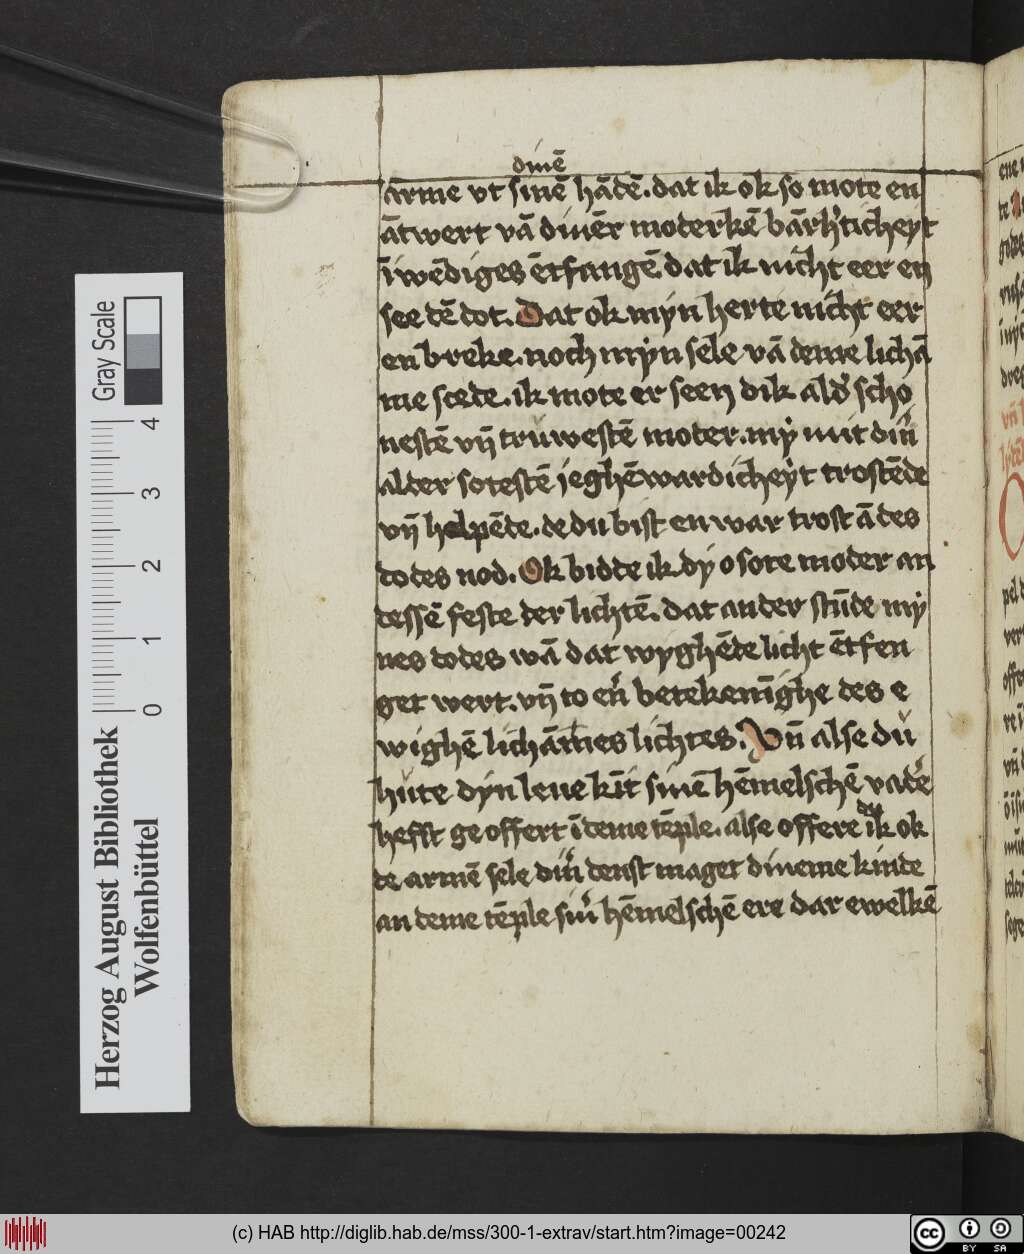 dinē
arme vt sinē hādē. dat ik ok so mote en
ātwert vā dinēr moderkē bārh'ticheyt
īwēdiges ētfangē. dat ik nicht eer en
see dē dot. Dat ok myn herte nicht eer
en breke. noch myn sele vā deme lichā
me scede. ik mote er seen dik ald' scho
nestē vn̄ truwestē moder. my mit din'
alder sotestē jeghēwardicheyt trostēde
vn̄ helpēde. de du bist en war trost ā des
dodes nod. Ok bidde ik dy o sote moder an
dessē feste der lichtē. dat an der stūde my
nes dodes wā dat wyghēde licht ētfen
get wert. vn̄ to en' betekenīghe des e
wighē lichāmes lichtes. Vn̄ alse du
hute dyn leue kīt sinē hēmelschē vad'e
hefft ge offert ī deme tēple. alse offere ik ok
dy
de armē sele din' denst maget dineme kinde
an deme tēple sin' hēmelschē ere dar ewelkē
Gray Scale
4
3
2
1
0
Herzog August Bibliothek
Wolfenbüttel
(c) HAB http://diglib.hab.de/mss/300-1-extrav/start.htm?image=00242
cc BY SA